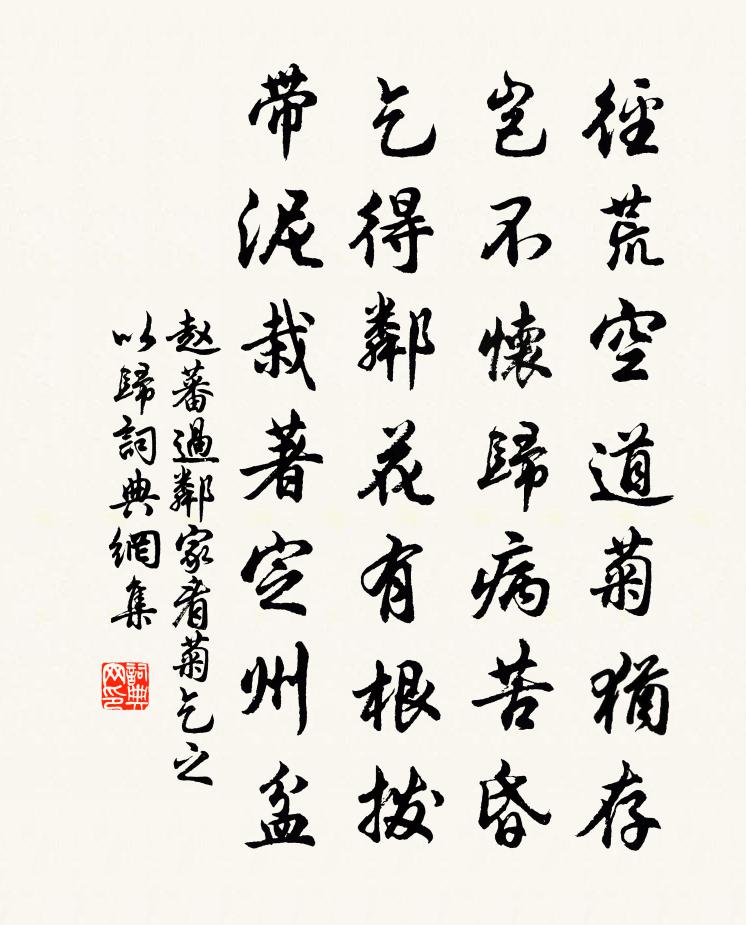 徑荒空道菊猶存
豈不懷歸病苦昏
乞得鄰花有根撥
帶泥栽著定州盆
赵蕃過鄰家看菊乞之
以歸詞典網集
詞典網印